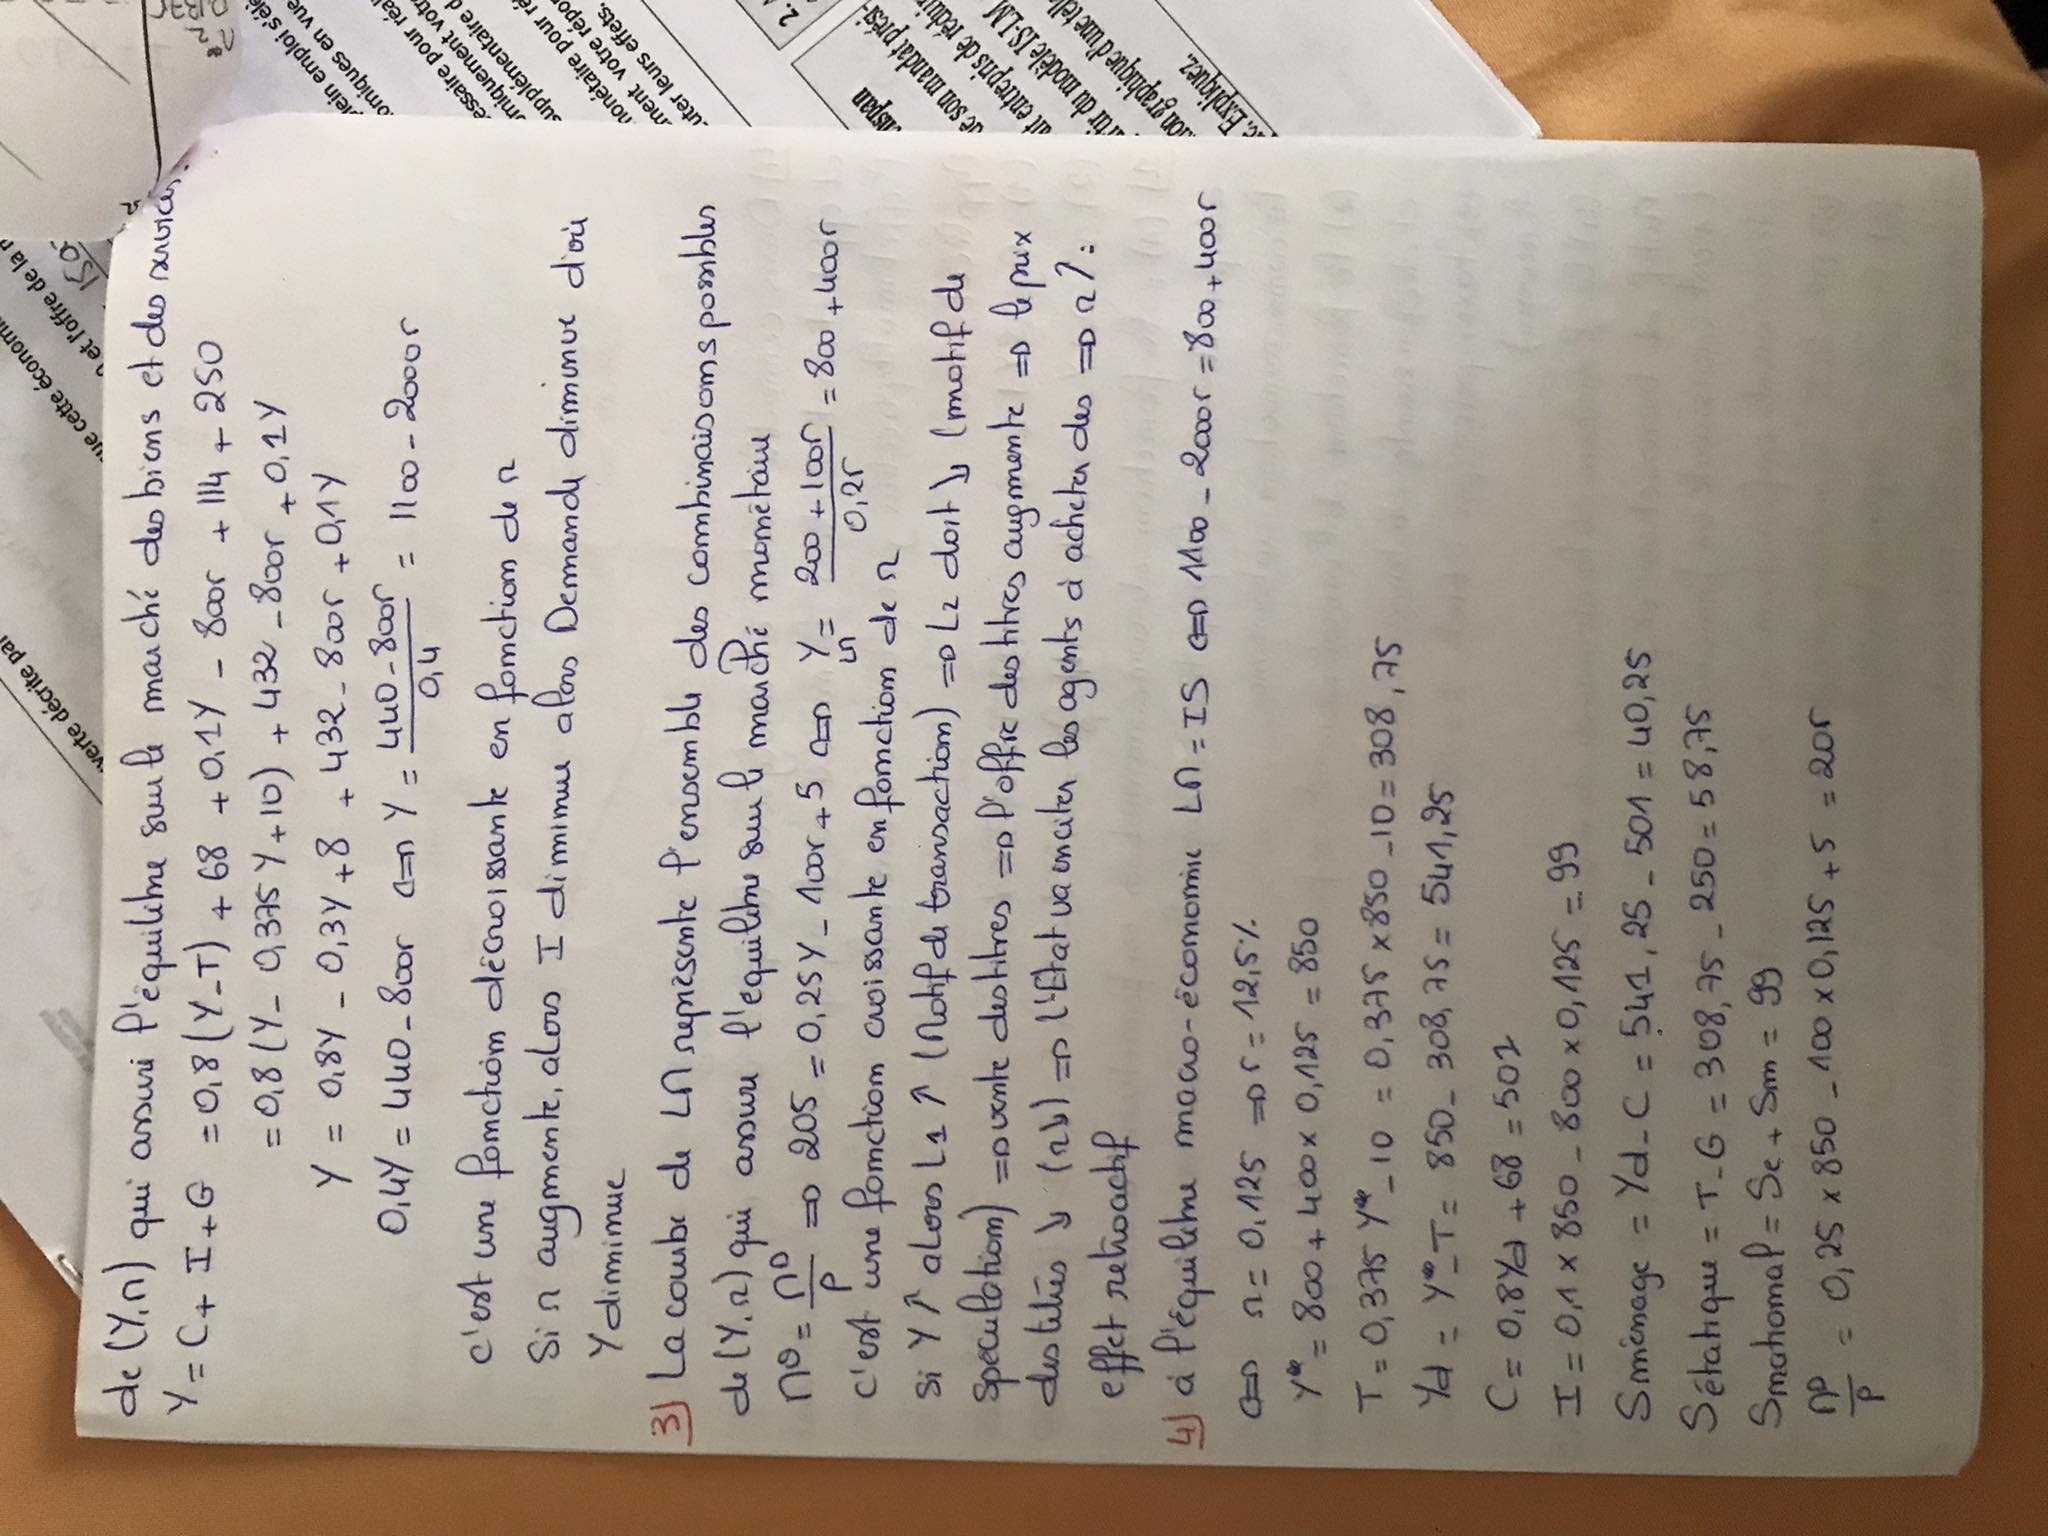 de (Y,r) qui assure l'équilibre sur le marché des biens et des services.
Y = C + I + G = 0,8 (Y - T) + 68 + 0,1Y - 800r + 114 + 250
= 0,8 (Y - 0,375Y + 10) + 432 - 800r + 0,1Y
Y = 0,8Y - 0,3Y + 8 + 432 - 800r + 0,1Y
0,4Y = 440 - 800r <=> Y = (440 - 800r) / 0,4 = 1100 - 2000r
c'est une fonction décroissante en fonction de r
Si r augmente, alors I diminue alors Demande diminue d'où
Y diminue
3) La courbe de LM représente l'ensemble des combinaisons possibles
de (Y,r) qui assure l'équilibre sur le marché monétaire
M° = M^D / P => 205 = 0,25Y - 100r + 5 <=> Y LM = (200 + 100r) / 0,25 = 800 + 400r
c'est une fonction croissante en fonction de r
Si Y ↑ alors L1 ↑ (Motif de transaction) => L2 doit ↓ (motif de
spéculation) => vente des titres => l'offre des titres augmente => le prix
des titres ↓ (r↓) => l'Etat va inciter les agents à acheter des => r↑ :
effet retroactif
4) à l'équilibre macro-économie LM = IS <=> 1100 - 2000r = 800 + 400r
<=> r = 0,125 => r = 12,5%
Y* = 800 + 400 × 0,125 = 850
T = 0,375 Y* - 10 = 0,375 × 850 - 10 = 308,75
Yd = Y* - T = 850 - 308,75 = 541,25
C = 0,8Yd + 68 = 501
I = 0,1 × 850 - 800 × 0,125 = 99
Sménage = Yd - C = 541,25 - 501 = 40,25
Sétatique = T - G = 308,75 - 250 = 58,75
Snational = Se + Sm = 99
M^D / P = 0,25 × 850 - 100 × 0,125 + 5 = 205
verte décrite par
que cette économi
n et l'offre de la
150
plein emploi s'élè
omiques en vue
essaire pour réali
omiquement votre
supplémentaire d
monétaire pour ré
ment votre répon
uter leurs effets.
2.
nspan
de son mandat prési-
ait entrepris de rédui
rtir du modèle IS-LM
ion graphique d'une telle
Expliquez.